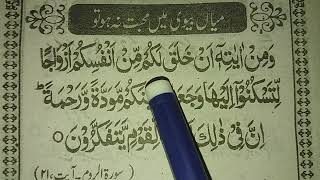 میاں بیوی میں محبت نہ ہو تو
وَمِنْ اٰیٰتِهٖۤ اَنْ خَلَقَ لَكُمْ مِّنْ اَنْفُسِكُمْ اَزْوَاجًا
لِّتَسْكُنُوْۤا اِلَیْهَا وَجَعَ كُمْ مَّوَدَّةً وَّرَحْمَةً ؕ
اِنَّ فِیْ ذٰلِكَ لِّقَوْمٍ یَّتَفَكَّرُوْنَ ○
(سورۃ الروم - آیت، ۲۱)